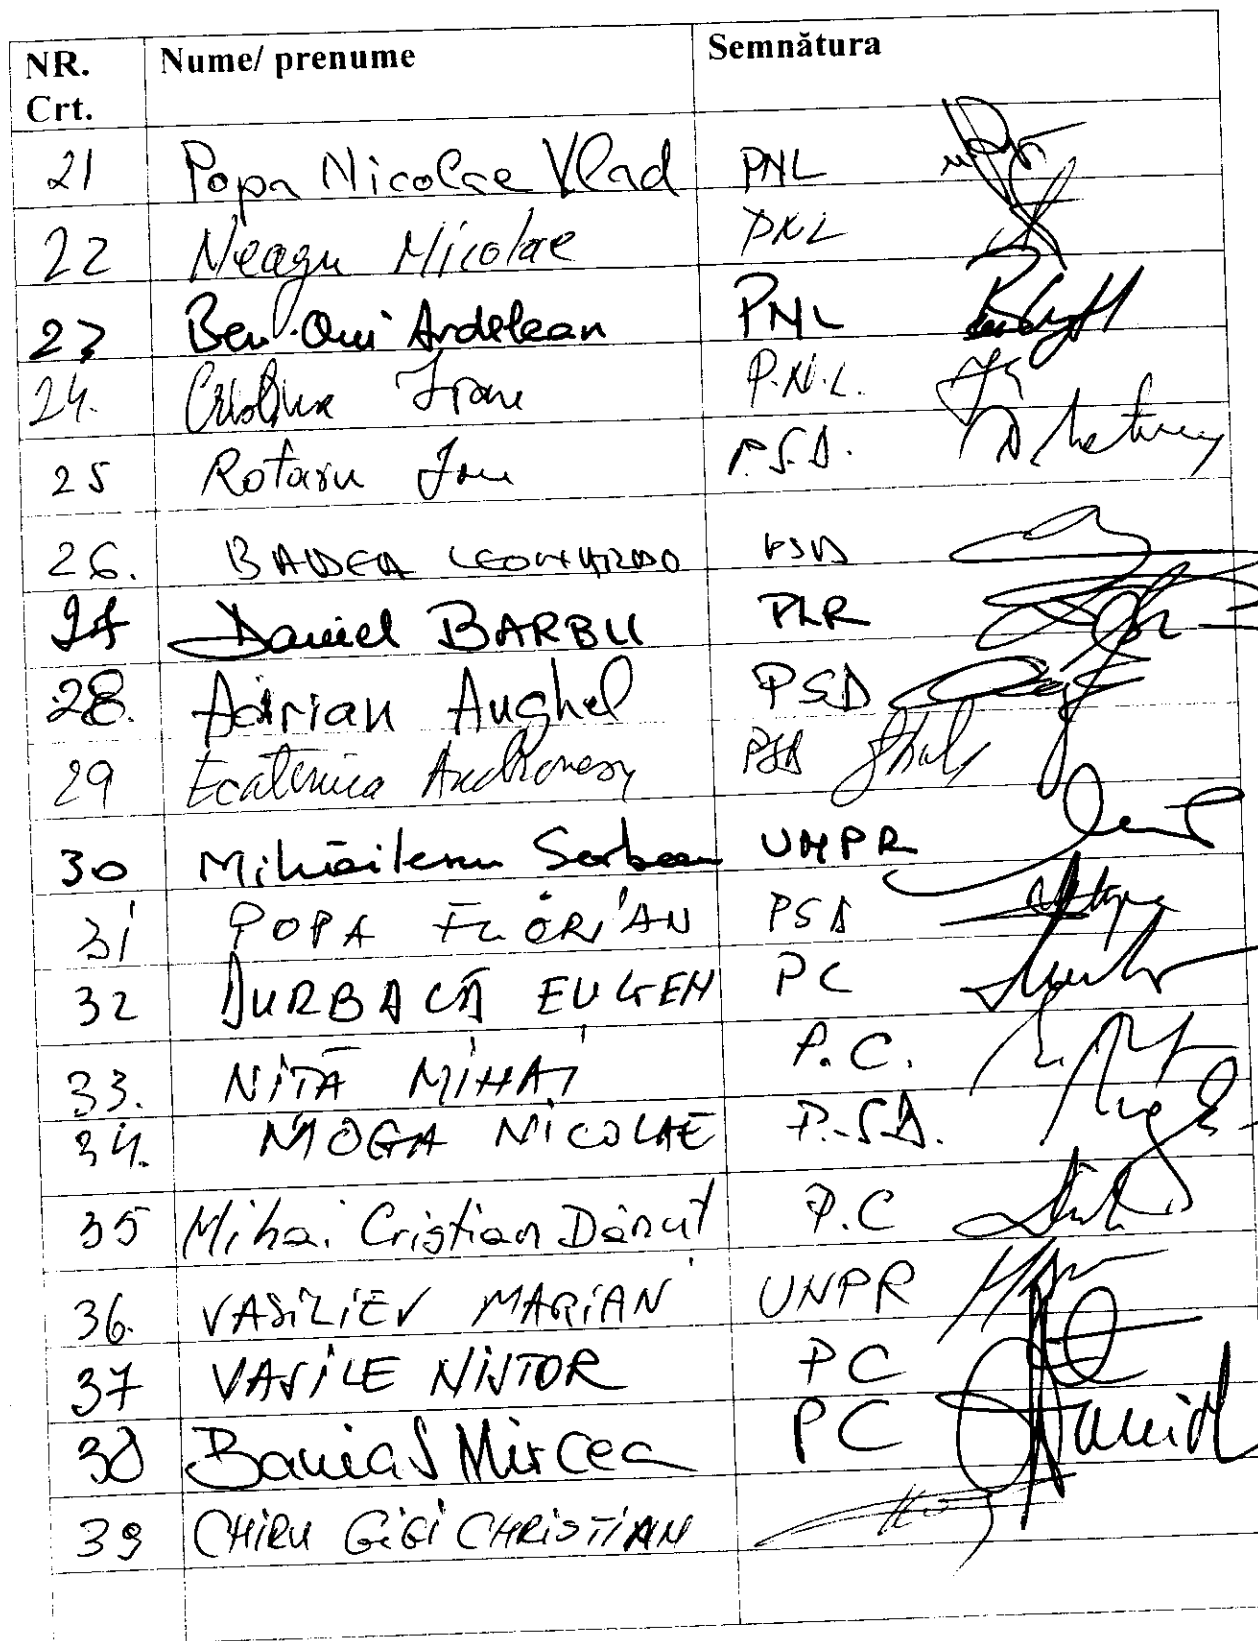 NR. Crt. Nume/ prenume Semnătura
21 Popa Nicolae Vlad PNL
22 Neagu Nicolae PNL
23 Ben-Oni Ardelean PNL
24. Cristina P.N.L.
25 Rotaru Ion P.S.D.
26. BADEA LEONARDO PSD
27 Daniel BARBU PLR
28. Adrian Anghel PSD
29 Ecaterina Andronescu PSD
30 Mihăilescu Serban UNPR
31 POPA FLORIAN PSD
32 DURBACĂ EUGEN PC
33. NIȚĂ MIHAI P.C.
34. MOGA NICOLAE P.S.D.
35 Mihai Cristian Dănuț P.C
36. VASILIEV MARIAN UNPR
37 VASILE NISTOR PC
38 Banias Mircea PC
39 CHIRU GIGI CHRISTIAN